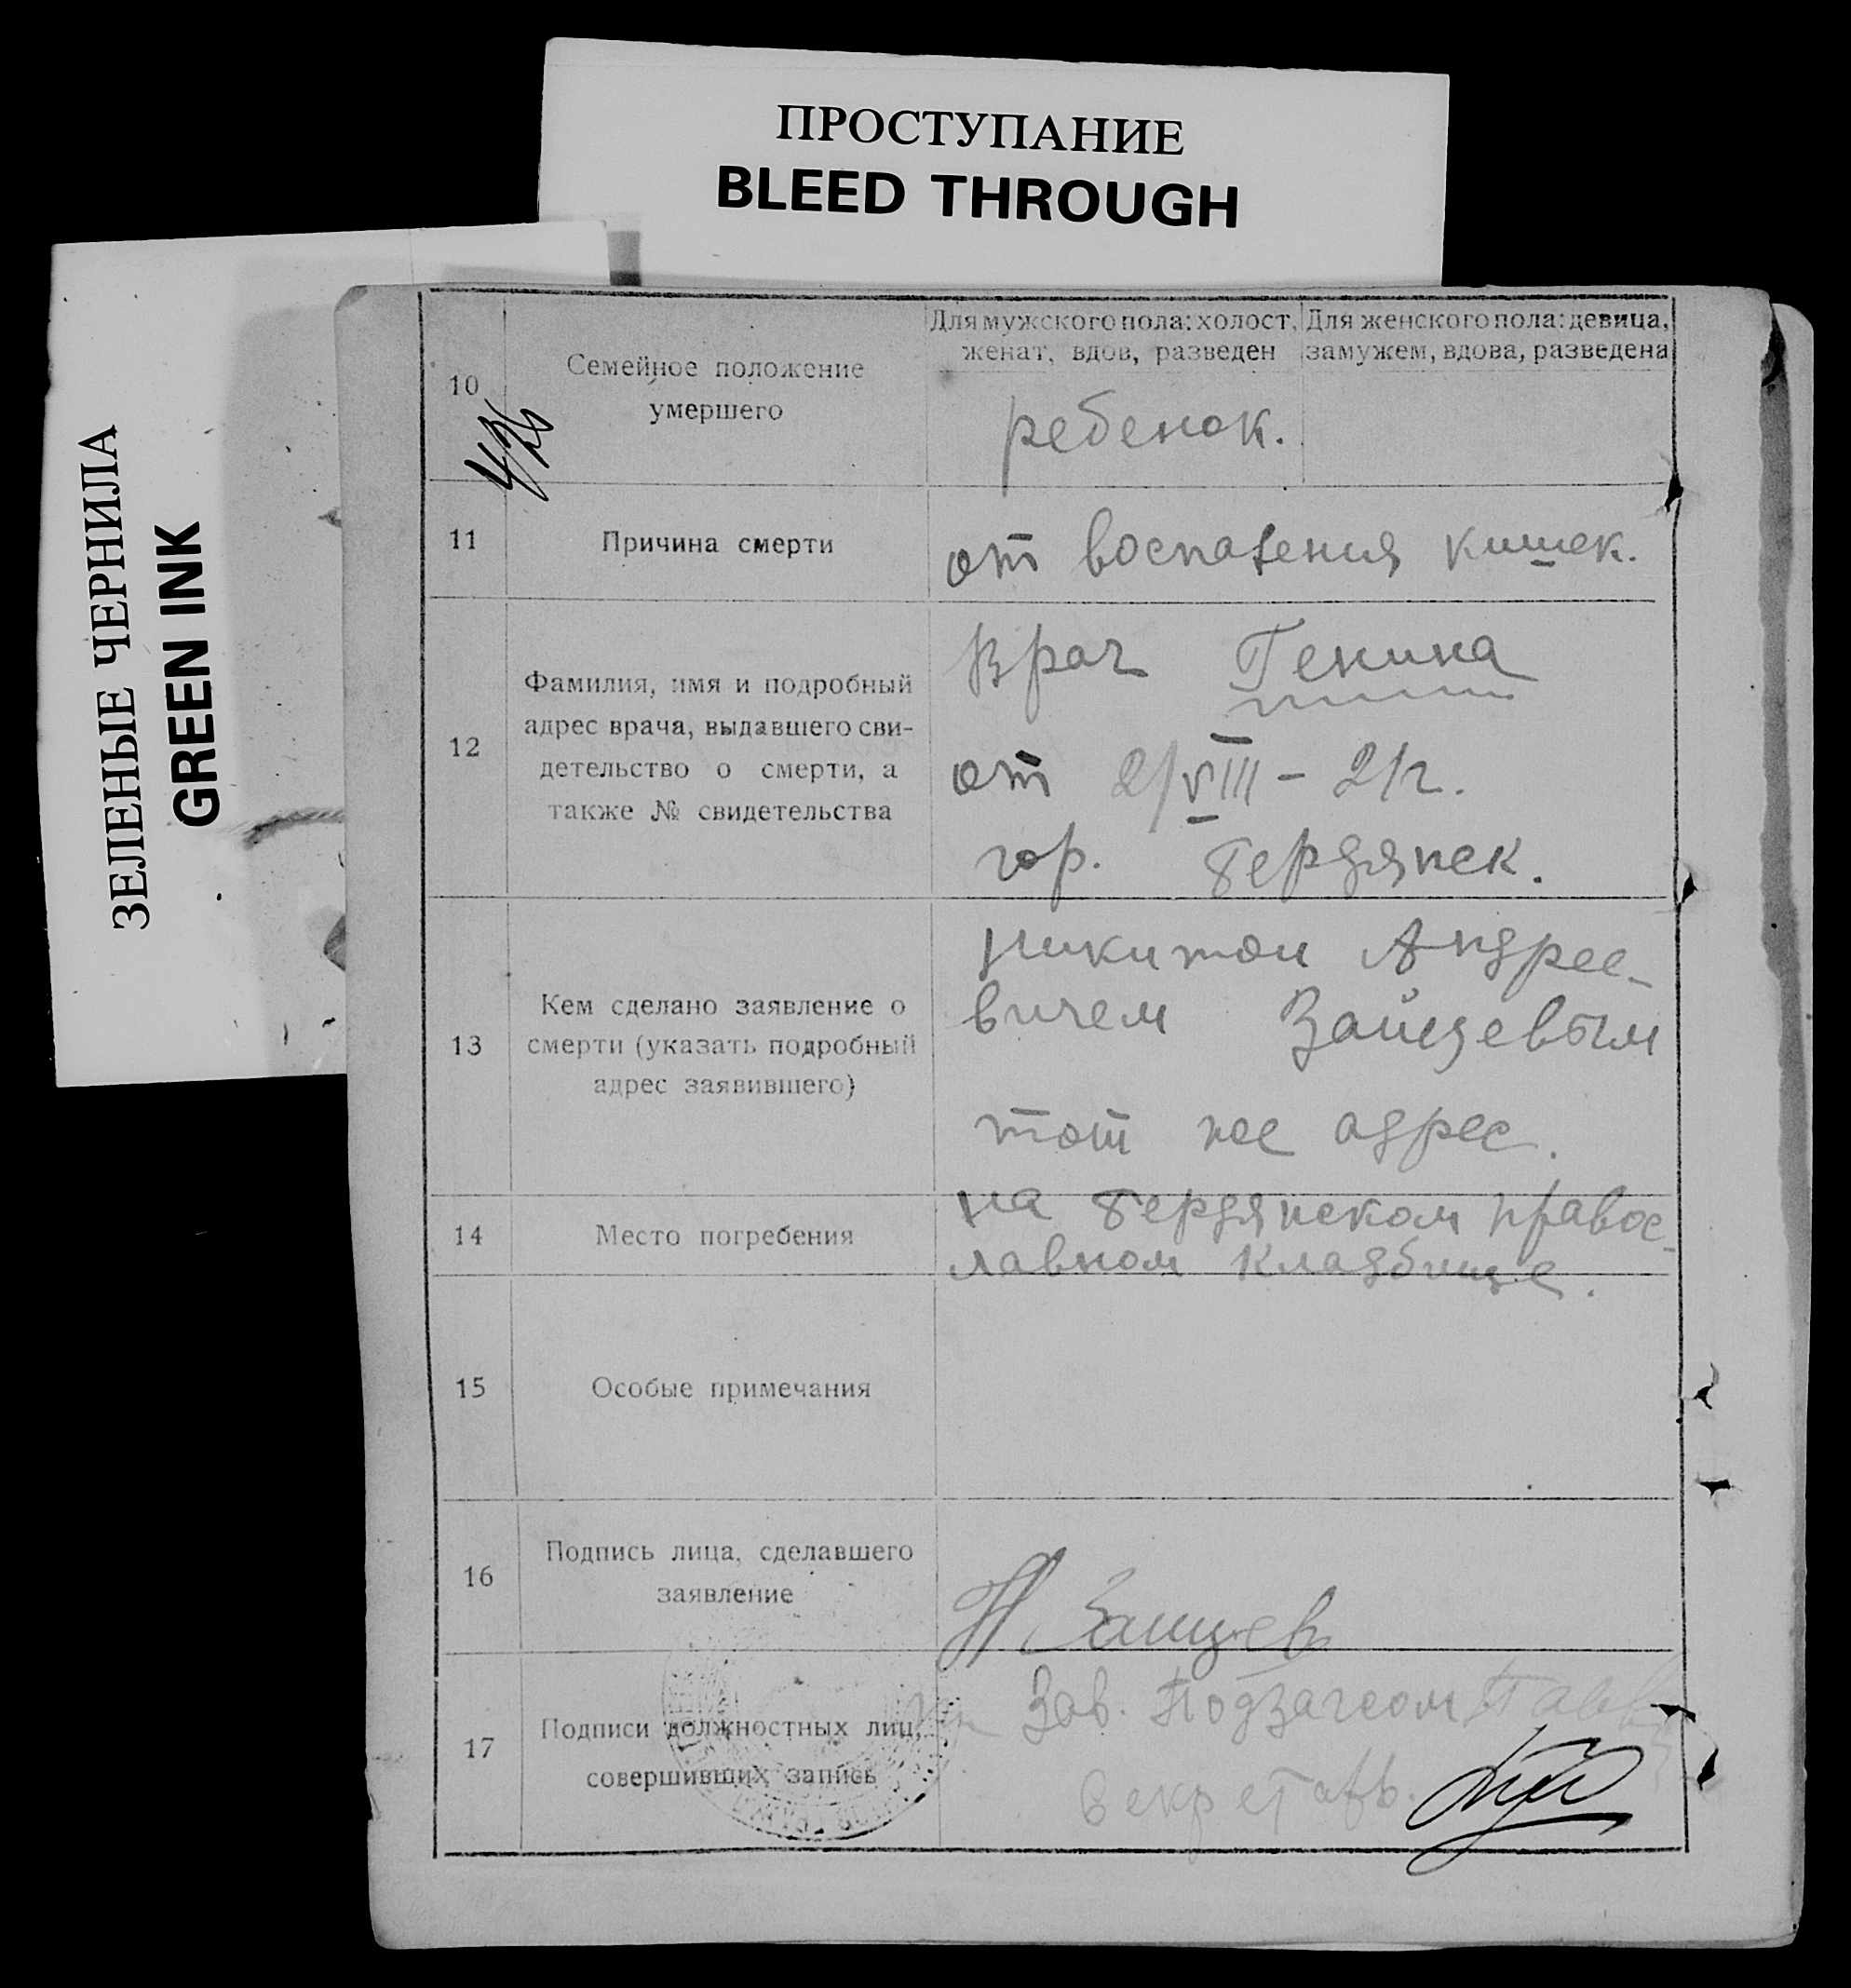 ПРОСТУПАНИЕ
BLEED THROUGH
ЗЕЛЕНЫЕ ЧЕРНИЛА
GREEN INK
10
426
Семейное положение
умершего
Для мужского пола: холост,
женат, вдов, разведен
Для женского пола: девица,
замужем, вдова, разведена
ребенок.
11
Причина смерти
от воспаления кишек.
12
Фамилия, имя и подробный
адрес врача, выдавшего сви-
детельство о смерти, а
также № свидетельства
Врач Генина
от 2/VIII – 21г.
гор. Бердянск.
13
Кем сделано заявление о
смерти (указать подробный
адрес заявившего)
Никитой Андрее-
вичем Зайцевым
тот же адрес.
14
Место погребения
на Бердянском правос-
лавном кладбище.
15
Особые примечания
16
Подпись лица, сделавшего
заявление
Н Зайцев
17
Подписи должностных лиц,
совершивших запись
Зав. Подзагсом
Секретарь.